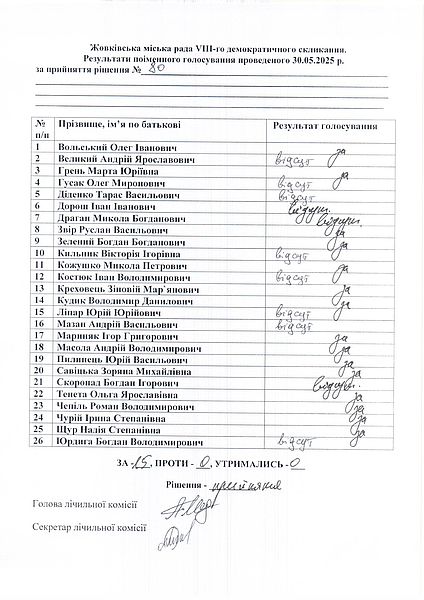 Жовківська міська рада VIII-го демократичного скликання.
Результати поіменного голосування проведеного 30.05.2025 р.
за прийняття рішення № 80
№ п/п Прізвище, ім’я по батькові Результат голосування
1 Вольський Олег Іванович за
2 Великий Андрій Ярославович відсут
3 Грень Марта Юріївна за
4 Гусак Олег Миронович відсут
5 Діденко Тарас Васильович відсут
6 Дорош Іван Іванович відсут.
7 Драган Микола Богданович відсут.
8 Звір Руслан Васильович за
9 Зелений Богдан Богданович за
10 Кильник Вікторія Ігорівна відсут
11 Кожушко Микола Петрович за
12 Костюк Іван Володимирович відсут
13 Креховець Зіновій Мар`янович за
14 Кудик Володимир Данилович за
15 Ліпар Юрій Юрійович відсут
16 Мазан Андрій Васильович відсут
17 Мариняк Ігор Григорович за
18 Масола Андрій Володимирович за
19 Пилипець Юрій Васильович за
20 Савіцька Зоряна Михайлівна за
21 Скоропад Богдан Ігорович відсут.
22 Тенета Ольга Ярославівна за
23 Чепіль Роман Володимирович за
24 Чурій Ірина Степанівна за
25 Щур Надія Степанівна за
26 Юрдига Богдан Володимирович відсут
ЗА - 15, ПРОТИ - 0, УТРИМАЛИСЬ - 0
Рішення - прийняте
Голова лічильної комісії
Секретар лічильної комісії